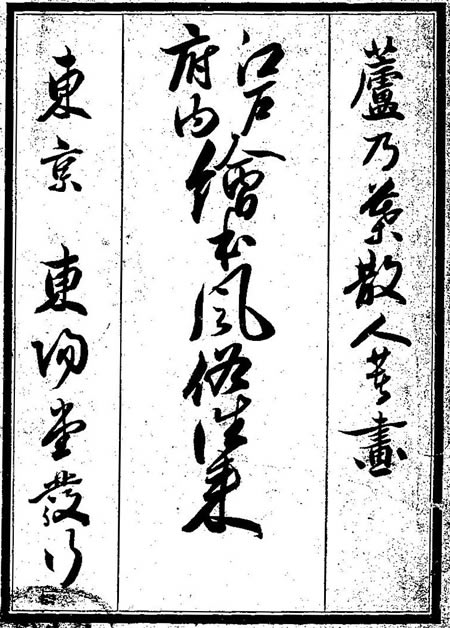 蘆乃葉散人著畫
江戸府内繪本風俗徃来
東京 東陽堂發行